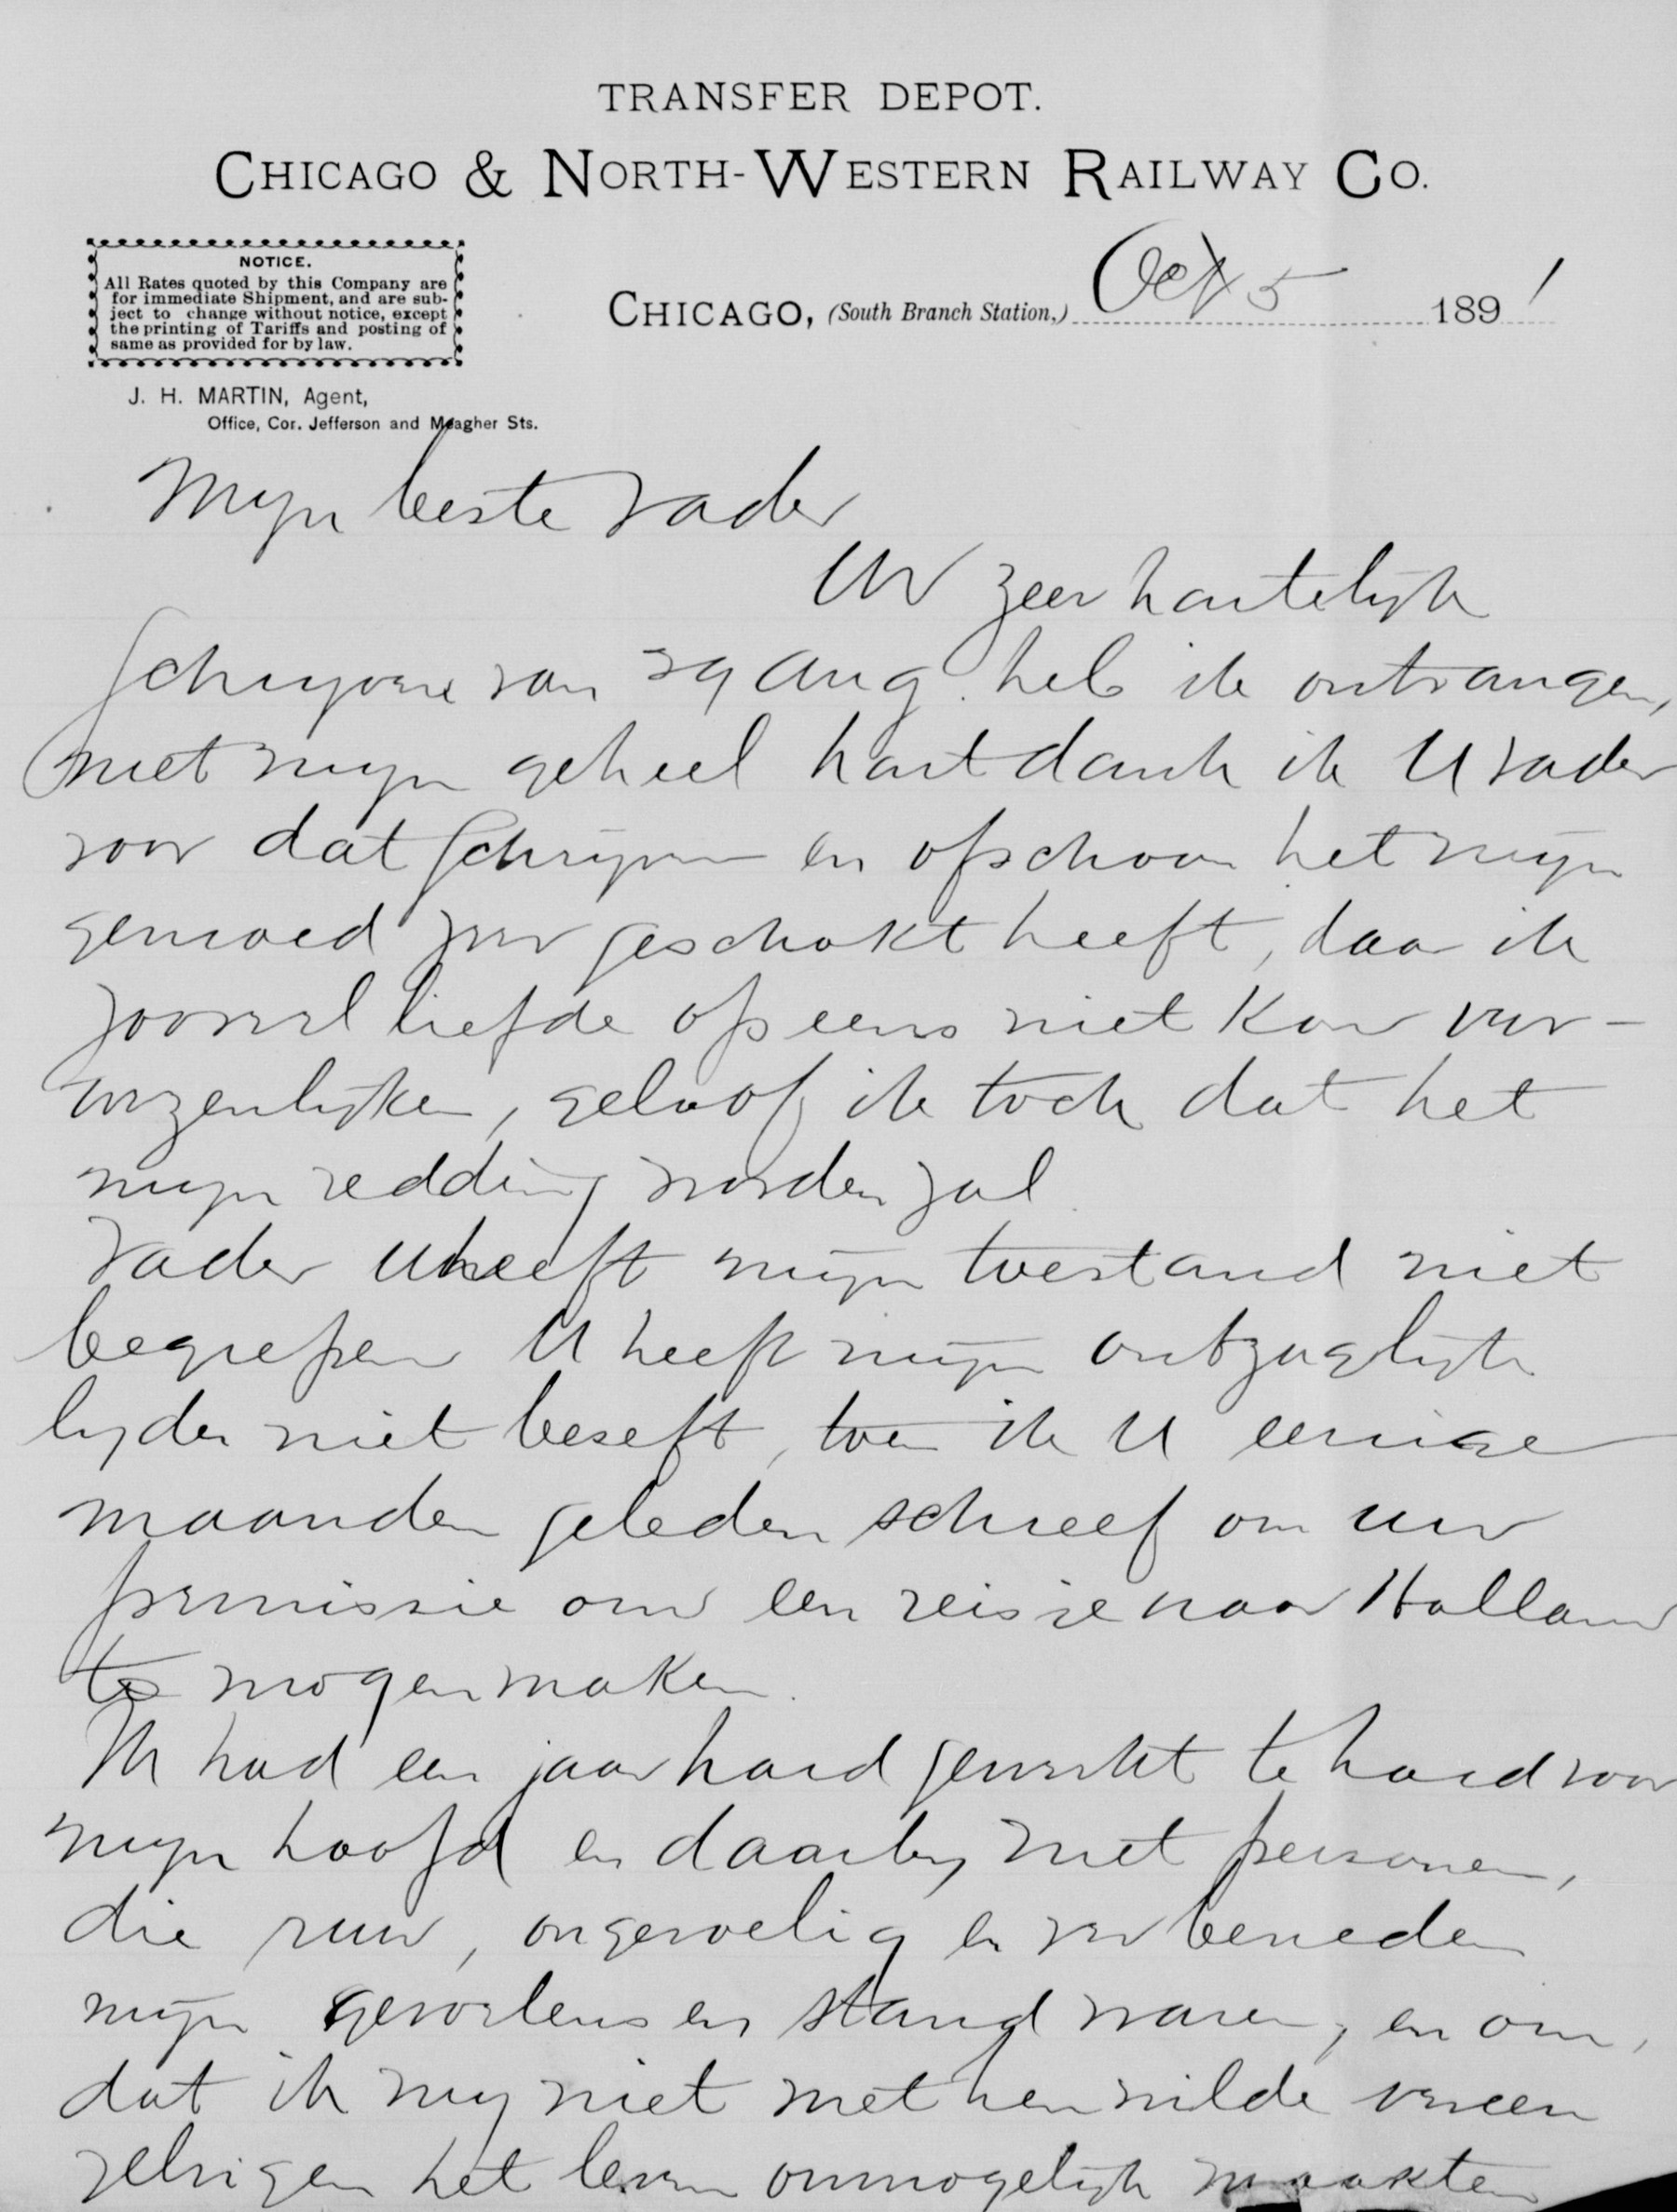 TRANSFER DEPOT.
CHICAGO & NORTH-WESTERN RAILWAY CO.
NOTICE.
All Rates quoted by this Company are
for immediate Shipment, and are sub-
ject to change without notice, except
the printing of Tariffs and posting of
same as provided for by law.
CHICAGO, (South Branch Station,) Oct 5 1891
J. H. MARTIN, Agent,
Office, Cor. Jefferson and Meagher Sts.
Mijn beste Vader
Uw zeer hartelijk
schrijven van 29 Aug. heb ik ontvangen,
met mijn geheel hart dank ik U Vader
voor dat schrijven en ofschoon het mijn
gemoed zeer geschokt heeft, daar ik
zooveel liefde opeens niet kon ver-
wezenlijken, geloof ik toch dat het
mijn redding worden zal.
Vader U heeft mijn toestand niet
begrepen U heeft mijn ontzaglijk
lijden niet beseft, toen ik U eenige
maanden geleden schreef om uw
permissie om een reisje naar Holland
te mogen maken.
Ik had een jaar hard gewerkt te hard voor
mijn hoofd en daarbij met personen,
die ruw, ongevoelig en ver beneden
mijn gevoelens en stand waren, en om,
dat ik mij niet met hen wilde vereen
zelvigen het leven onmogelijk maakten